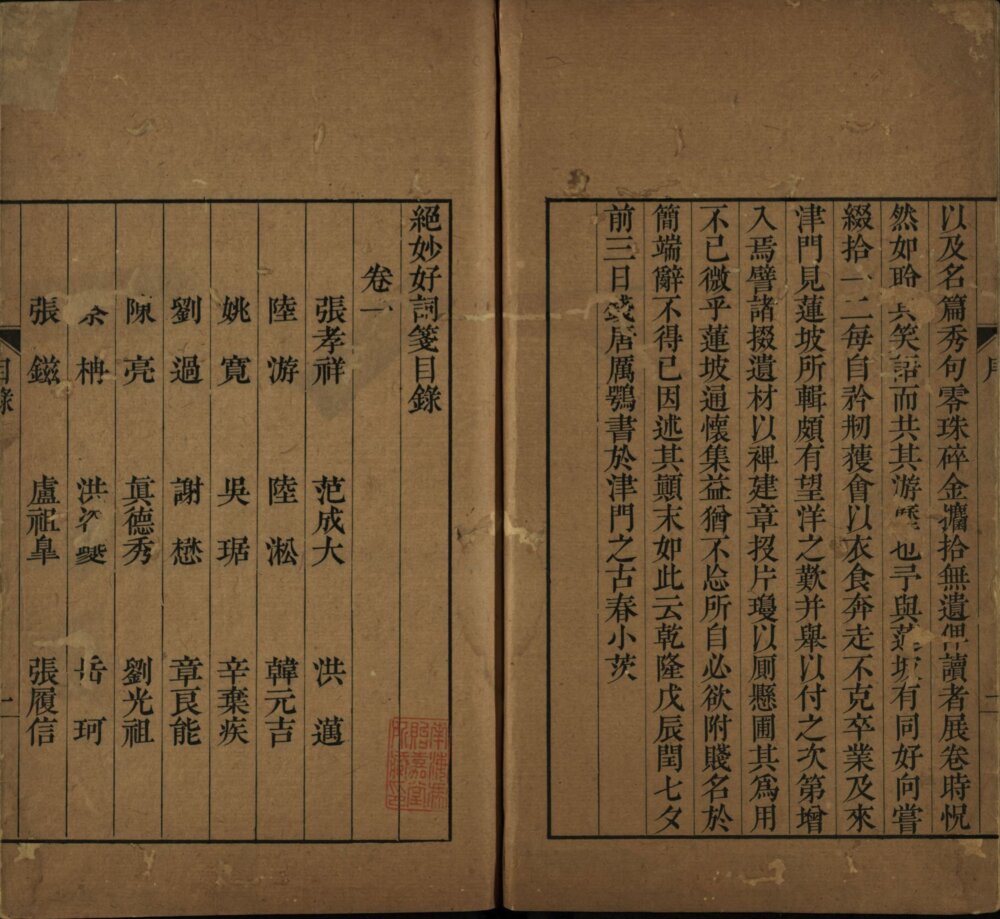 以及名篇秀句零珠碎金攟拾無遺俾讀者展卷時怳
然如聆其笑語而共其游歷也予與蓮坡有同好向嘗
綴拾一二每自矜剏獲會以衣食奔走不克卒業及來
津門見蓮坡所輯頗有望洋之歎并舉以付之次第增
入焉譬諸掇遺材以裨建章投片瓊以厠懸圃其爲用
不已微乎蓮坡通懷集益猶不忩所自必欲附賤名於
簡端辭不得已因述其顛末如此云乾隆戊辰閏七夕
前三日錢唐厲鶚書於津門之古春小茨
序
二
絕妙好詞箋目錄
卷一
張孝祥 范成大 洪邁
陸游 陸淞 韓元吉
姚寛 吳琚 辛棄疾
劉過 謝懋 章良能
陳亮 眞德秀 劉光祖
蔡柟 洪咨夔 岳珂
張鎡 盧祖皐 張履信
目錄